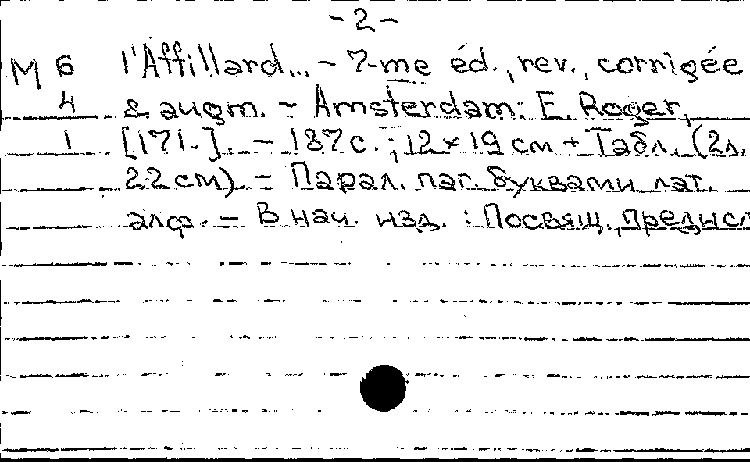 - 2 -
М 6 l'Affillard... - 7-me éd., rev., corrigée
4 & augm. - Amsterdam: E. Roger,
1 [171.]. - 187 с.; 12×19 см + Табл. (2л.
22 см). - Парал. паг. буквами лат.
алф. - В нач. изд.: Посвящ., предисл